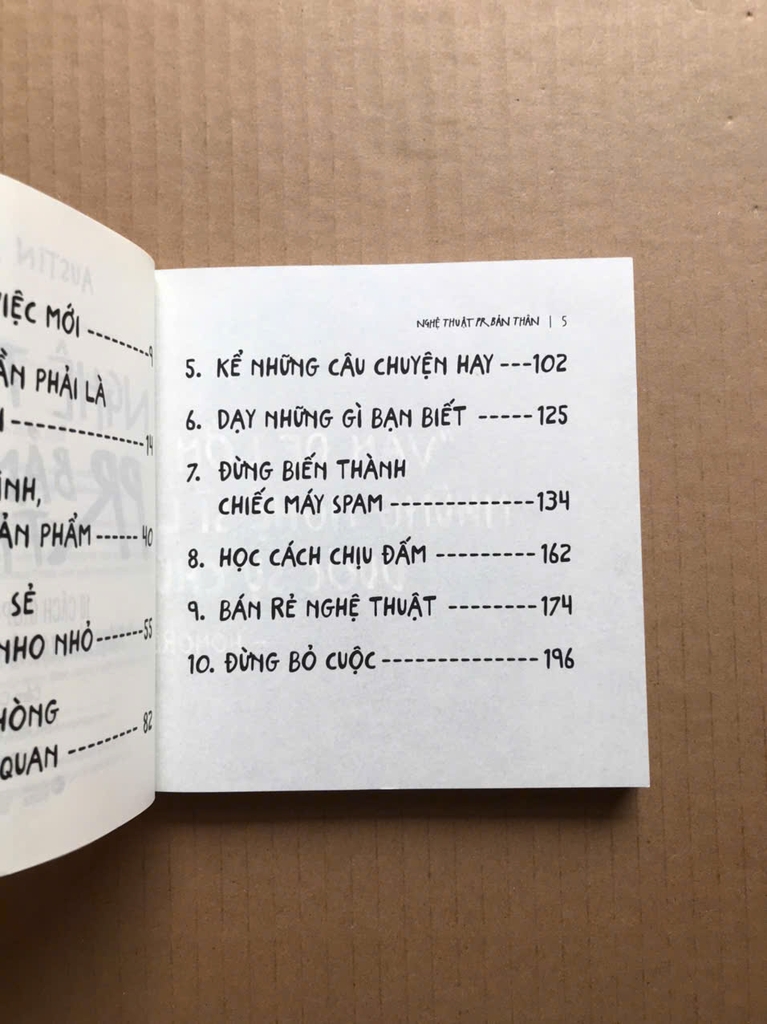 VIỆC MỚI -------- 9
PHẢI LÀ
-------------- 14
ÌNH,
SẢN PHẨM ----- 40
SẺ
NHO NHỎ ------ 55
HÒNG
QUAN -------- 82
NGHỆ THUẬT PR BẢN THÂN | 5
5. KỂ NHỮNG CÂU CHUYỆN HAY ---102
6. DẠY NHỮNG GÌ BẠN BIẾT ----- 125
7. ĐỪNG BIẾN THÀNH
CHIẾC MÁY SPAM --------------134
8. HỌC CÁCH CHỊU ĐẤM --------- 162
9. BÁN RẺ NGHỆ THUẬT -------- 174
10. ĐỪNG BỎ CUỘC -------------- 196